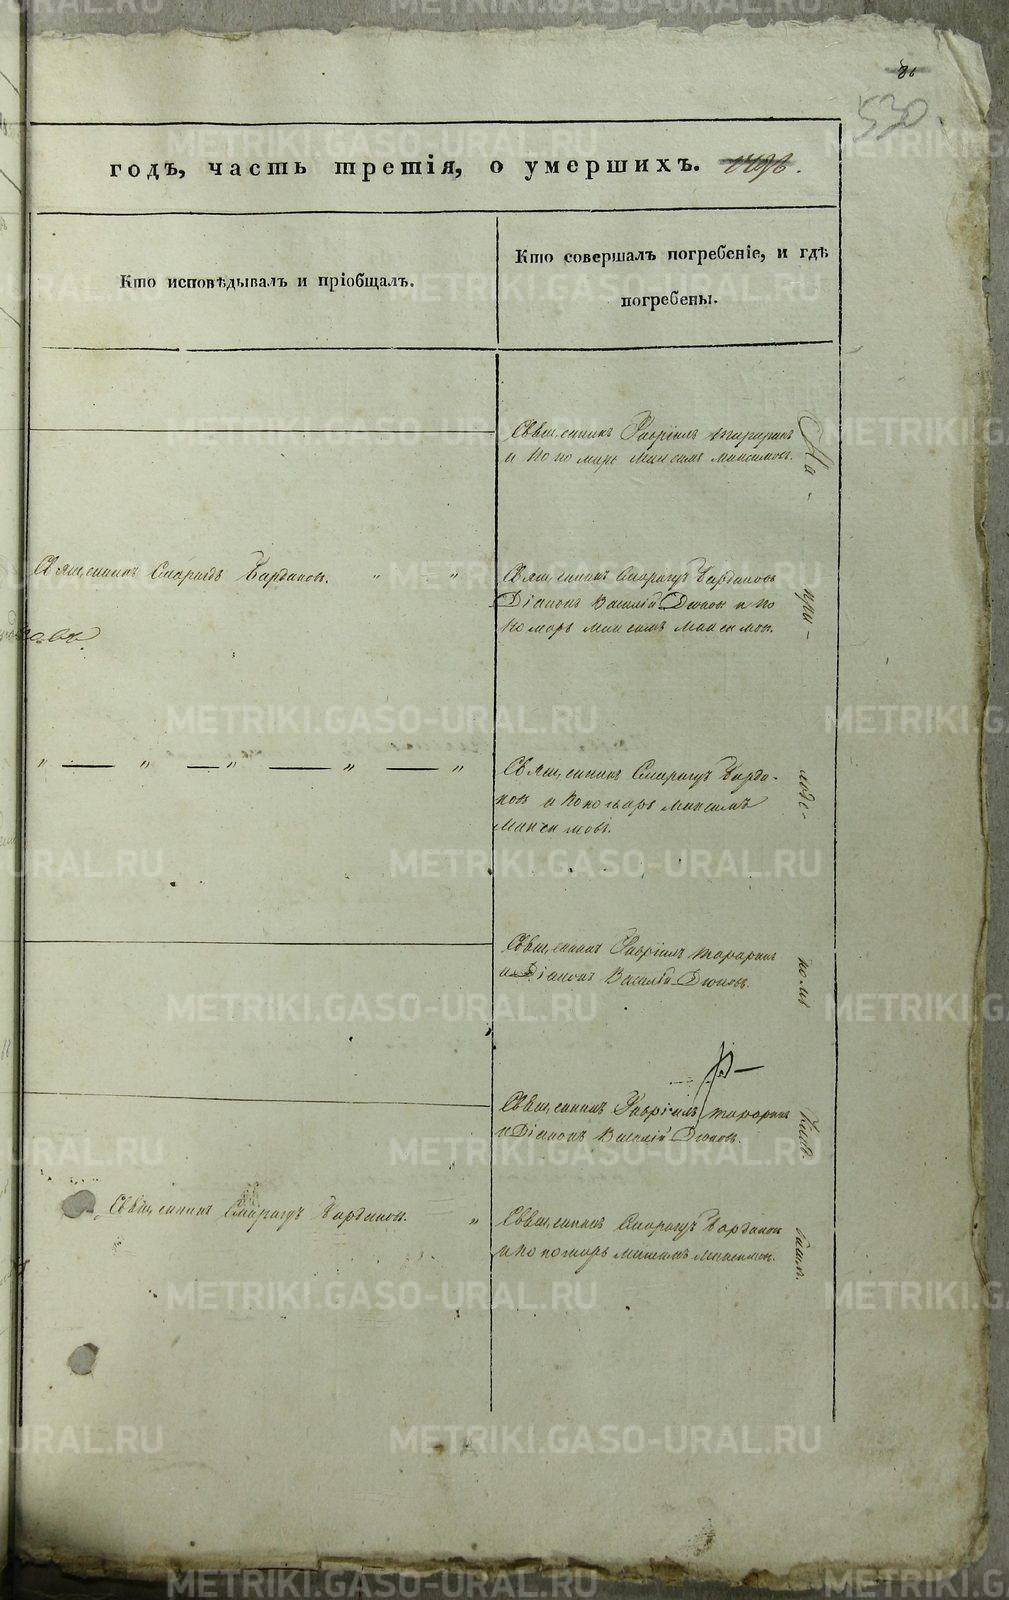 86
530
годъ, часть третія, о умершихъ.
Кто исповѣдывалъ и пріобщалъ.
Кто совершалъ погребеніе, и гдѣ
погребены.
Священникъ Гавріилъ
и Пономарь Максимъ Максимовъ.
На
Священникъ Смарагдъ Барданов. " "
Священникъ Смарагдъ Бардановъ
Діаконъ Василій и По
номарь Максимъ Максимов.
при
" — " — " — " — "
Священникъ Смарагдъ Барда-
нов и Пономарь Максимъ
Максимовъ.
ходс-
Священникъ Гавріилъ
и Діаконъ Василій
комъ
Священникъ Гавріилъ
и Діаконъ Василій
Священникъ Смарагдъ Барданов. "
Священникъ Смарагдъ Барданов
и Пономарь Максимъ Максимов.
METRIKI.GASO-URAL.RU